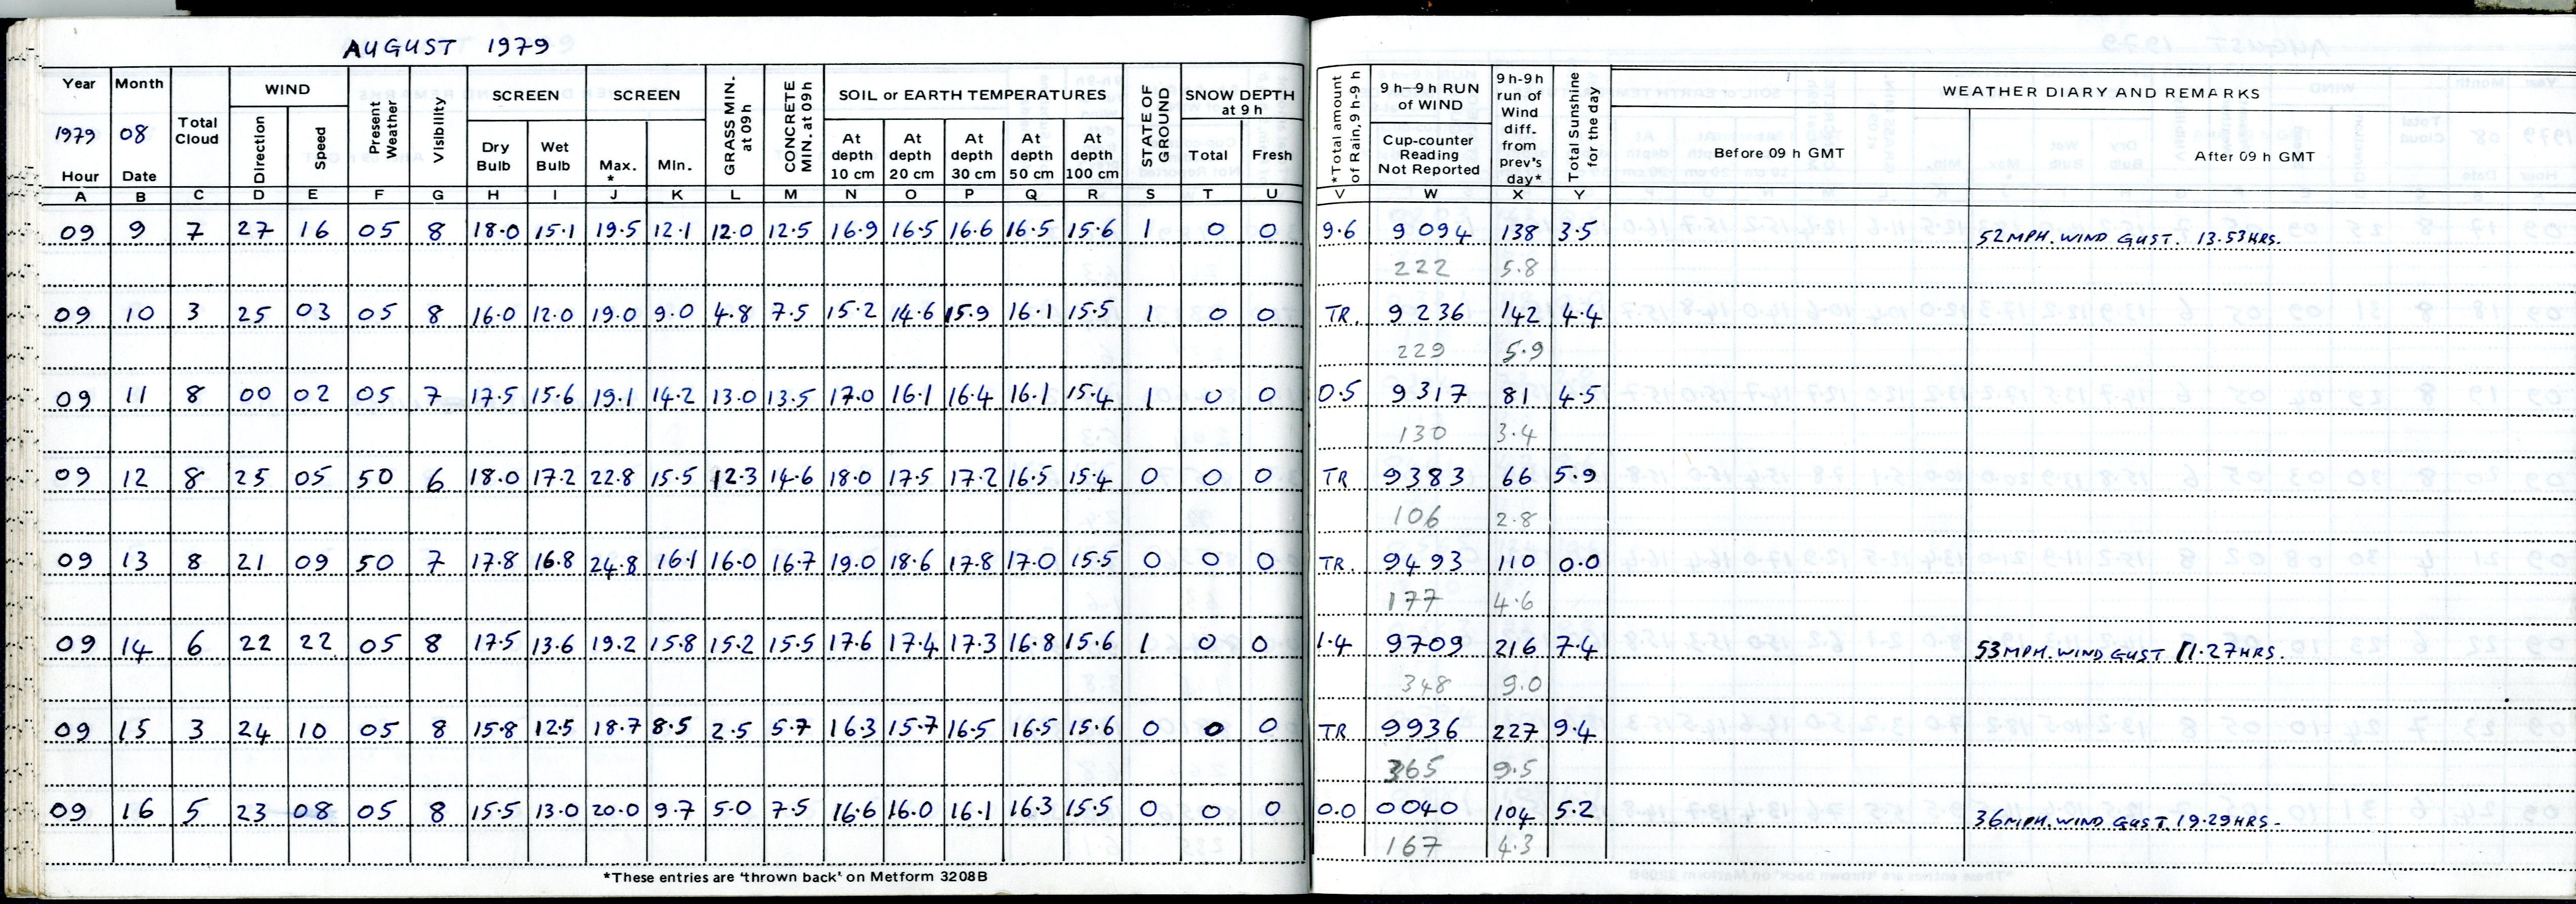 AUGUST 1979
Year Month Total Cloud WIND Present Weather Visibility SCREEN SCREEN GRASS MIN. at 09h CONCRETE MIN. at 09h SOIL or EARTH TEMPERATURES STATE OF GROUND SNOW DEPTH at 9 h *Total amount of Rain, 9h-9h 9 h–9 h RUN of WIND 9h-9h run of Wind diff. from prev's day* Total Sunshine for the day WEATHER DIARY AND REMARKS
1979 08 Direction Speed Dry Bulb Wet Bulb Max. * Min. At depth 10 cm At depth 20 cm At depth 30 cm At depth 50 cm At depth 100 cm Total Fresh Cup-counter Reading Not Reported Before 09 h GMT After 09 h GMT
Hour Date
A B C D E F G H I J K L M N O P Q R S T U V W X Y
09 9 7 27 16 05 8 18.0 15.1 19.5 12.1 12.0 12.5 16.9 16.5 16.6 16.5 15.6 1 0 0 9.6 9094 138 3.5 52MPH. WIND GUST. 13.53HRS.
222 5.8
09 10 3 25 03 05 8 16.0 12.0 19.0 9.0 4.8 7.5 15.2 14.6 15.9 16.1 15.5 1 0 0 TR. 9236 142 4.4
229 5.9
09 11 8 00 02 05 7 17.5 15.6 19.1 14.2 13.0 13.5 17.0 16.1 16.4 16.1 15.4 1 0 0 0.5 9317 81 4.5
130 3.4
09 12 8 25 05 50 6 18.0 17.2 22.8 15.5 12.3 14.6 18.0 17.5 17.2 16.5 15.4 0 0 0 TR 9383 66 5.9
106 2.8
09 13 8 21 09 50 7 17.8 16.8 24.8 16.1 16.0 16.7 19.0 18.6 17.8 17.0 15.5 0 0 0 TR. 9493 110 0.0
177 4.6
09 14 6 22 22 05 8 17.5 13.6 19.2 15.8 15.2 15.5 17.6 17.4 17.3 16.8 15.6 1 0 0 1.4 9709 216 7.4 53MPH. WIND GUST 11.27HRS.
348 9.0
09 15 3 24 10 05 8 15.8 12.5 18.7 8.5 2.5 5.7 16.3 15.7 16.5 16.5 15.6 0 0 0 TR 9936 227 9.4
365 9.5
09 16 5 23 08 05 8 15.5 13.0 20.0 9.7 5.0 7.5 16.6 16.0 16.1 16.3 15.5 0 0 0 0.0 0040 104 5.2 36MPH. WIND GUST. 19.29HRS.
167 4.3
*These entries are 'thrown back' on Metform 3208B